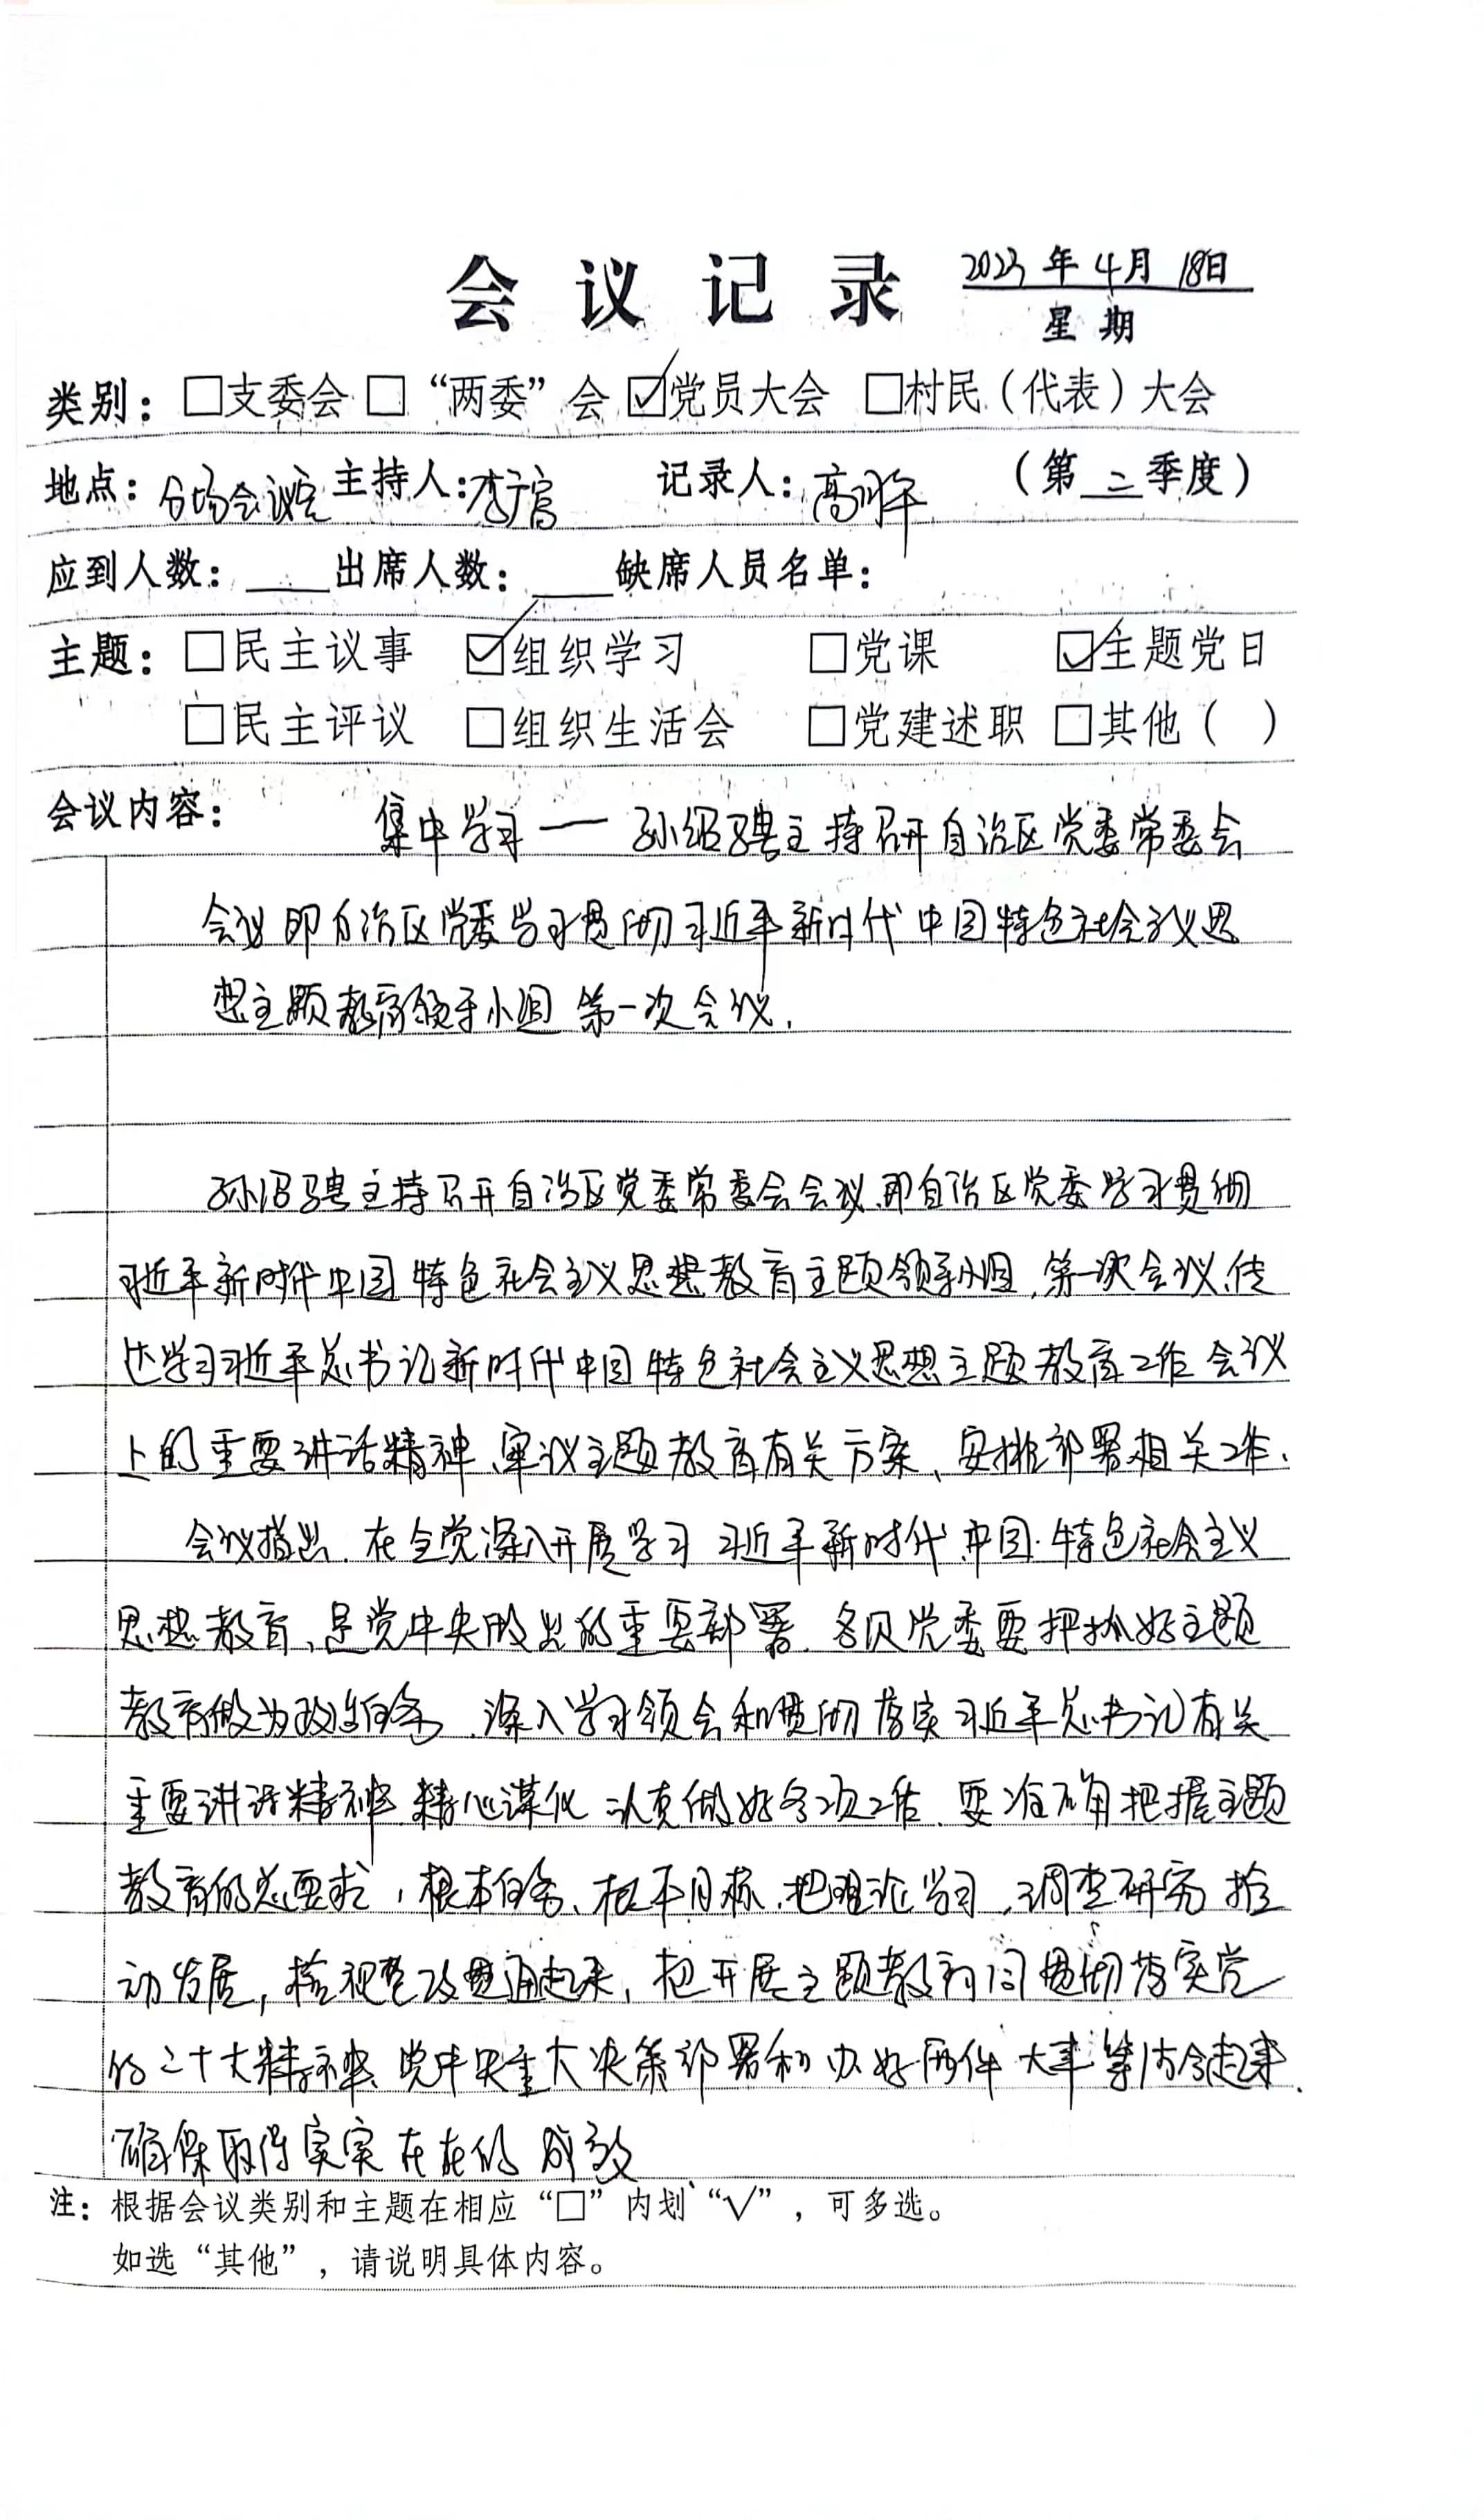 会议记录 2023年4月18日
星期
类别：□支委会 □“两委”会 ☑党员大会 □村民（代表）大会
地点：分场会议室 主持人：李广富 记录人：高 （第二季度）
应到人数：____出席人数：____缺席人员名单：
主题：□民主议事 ☑组织学习 □党课 ☑主题党日
□民主评议 □组织生活会 □党建述职 □其他（ ）
会议内容： 集中学习——孙绍骋主持召开自治区党委常委会
会议即自治区党委学习贯彻习近平新时代中国特色社会主义思
想主题教育领导小组第一次会议.
孙绍骋主持召开自治区党委常委会会议、即自治区党委学习贯彻
习近平新时代中国特色社会主义思想教育主题领导小组,第一次会议,传
达学习习近平总书记新时代中国特色社会主义思想主题教育工作会议
上的重要讲话精神、审议主题教育有关方案、安排部署相关工作.
会议指出.在全党深入开展学习习近平新时代中国特色社会主义
思想教育,是党中央的重要部署.各级党委要把抓好主题
教育做为政治任务.深入学习领会和贯彻落实习近平总书记有关
重要讲话精神.精心谋化认真做好各项工作.要准确把握主题
教育的总要求,根本任务、根本目标.把理论学习、调查研究推
动发展,检视整改贯通起来,把开展主题教育同贯彻落实党
的二十大精神、党中央重大决策部署和办好两件大事等结合起来.
确保取得实实在在的成效
注：根据会议类别和主题在相应“□”内划“√”，可多选。
如选“其他”，请说明具体内容。